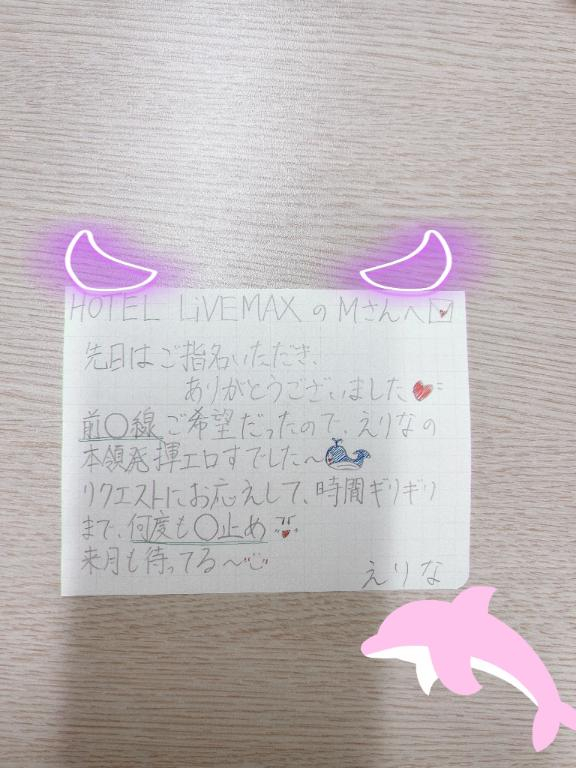 HOTEL LiVEMAXのMさんへ
先日はご指名いただき、
ありがとうございました
前〇線ご希望だったので、えりなの
本領発揮エロすでした〜
リクエストにお応えして、時間ギリギリ
まで、何度も〇止め
来月も待ってる〜
えりな